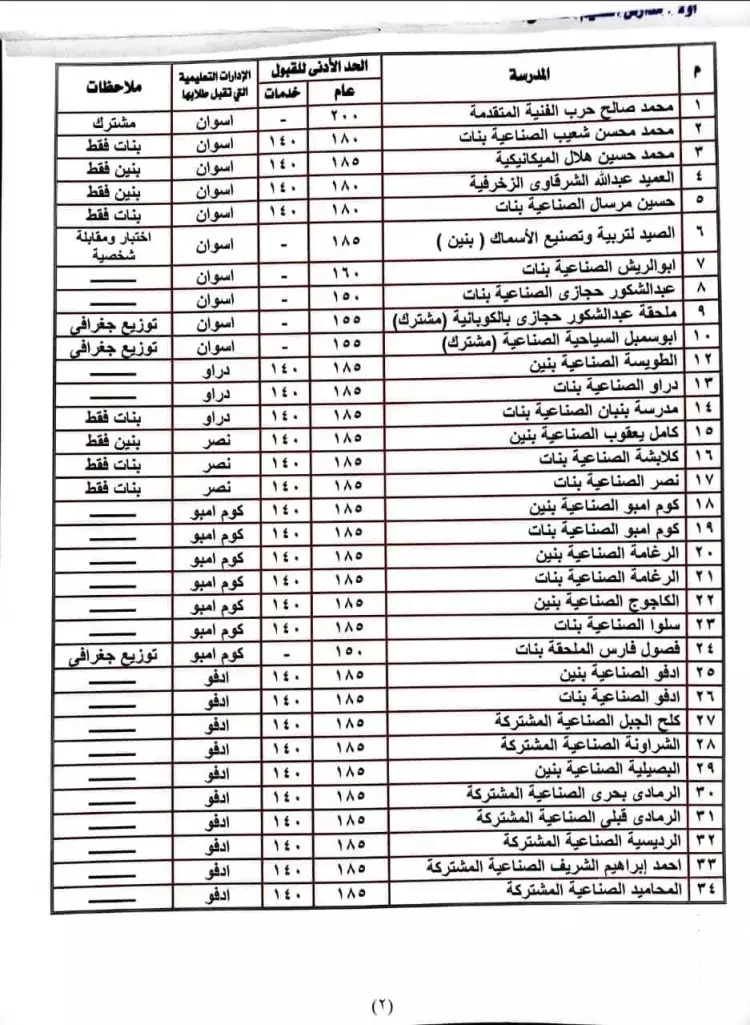 م | المدرسة | الحد الأدنى للقبول | الإدارات التعليمية التي تقبل طلابها | ملاحظات
عام | خدمات
١ | محمد صالح حرب الفنية المتقدمة | ٢٠٠ | - | اسوان | مشترك
٢ | محمد محسن شعيب الصناعية بنات | ١٨٠ | ١٤٠ | اسوان | بنات فقط
٣ | محمد حسين هلال الميكانيكية | ١٨٥ | ١٤٠ | اسوان | بنين فقط
٤ | العميد عبدالله الشرقاوى الزخرفية | ١٨٠ | ١٤٠ | اسوان | بنين فقط
٥ | حسين مرسال الصناعية بنات | ١٨٠ | ١٤٠ | اسوان | بنات فقط
٦ | الصيد لتربية وتصنيع الأسماك ( بنين ) | ١٨٥ | - | اسوان | اختبار ومقابلة شخصية
٧ | ابوالريش الصناعية بنات | ١٦٠ | - | اسوان | ——
٨ | عبدالشكور حجازى الصناعية بنات | ١٥٠ | - | اسوان | ——
٩ | ملحقة عبدالشكور حجازي بالكوبانية (مشترك) | ١٥٥ | - | اسوان | توزيع جغرافي
١٠ | ابوسمبل السياحية الصناعية (مشترك) | ١٥٥ | - | اسوان | توزيع جغرافي
١٢ | الطويسة الصناعية بنين | ١٨٥ | ١٤٠ | دراو | ——
١٣ | دراو الصناعية بنات | ١٨٥ | ١٤٠ | دراو | ——
١٤ | مدرسة بنبان الصناعية بنات | ١٨٥ | ١٤٠ | دراو | بنات فقط
١٥ | كامل يعقوب الصناعية بنين | ١٨٥ | ١٤٠ | نصر | بنين فقط
١٦ | كلابشة الصناعية بنات | ١٨٥ | ١٤٠ | نصر | بنات فقط
١٧ | نصر الصناعية بنات | ١٨٥ | ١٤٠ | نصر | بنات فقط
١٨ | كوم امبو الصناعية بنين | ١٨٥ | ١٤٠ | كوم امبو | ——
١٩ | كوم امبو الصناعية بنات | ١٨٥ | ١٤٠ | كوم امبو | ——
٢٠ | الرغامة الصناعية بنين | ١٨٥ | ١٤٠ | كوم امبو | ——
٢١ | الرغامة الصناعية بنات | ١٨٥ | ١٤٠ | كوم امبو | ——
٢٢ | الكاجوج الصناعية بنين | ١٨٥ | ١٤٠ | كوم امبو | ——
٢٣ | سلوا الصناعية بنات | ١٨٥ | ١٤٠ | كوم امبو | ——
٢٤ | فصول فارس الملحقة بنات | ١٥٠ | - | كوم امبو | توزيع جغرافي
٢٥ | ادفو الصناعية بنين | ١٨٥ | ١٤٠ | ادفو | ——
٢٦ | ادفو الصناعية بنات | ١٨٥ | ١٤٠ | ادفو | ——
٢٧ | كلح الجبل الصناعية المشتركة | ١٨٥ | ١٤٠ | ادفو | ——
٢٨ | الشراونة الصناعية المشتركة | ١٨٥ | ١٤٠ | ادفو | ——
٢٩ | البصيلية الصناعية بنين | ١٨٥ | ١٤٠ | ادفو | ——
٣٠ | الرمادى بحرى الصناعية المشتركة | ١٨٥ | ١٤٠ | ادفو | ——
٣١ | الرمادى قبلي الصناعية المشتركة | ١٨٥ | ١٤٠ | ادفو | ——
٣٢ | الرديسية الصناعية المشتركة | ١٨٥ | ١٤٠ | ادفو | ——
٣٣ | احمد إبراهيم الشريف الصناعية المشتركة | ١٨٥ | ١٤٠ | ادفو | ——
٣٤ | المحاميد الصناعية المشتركة | ١٨٥ | ١٤٠ | ادفو | ——
(٢)